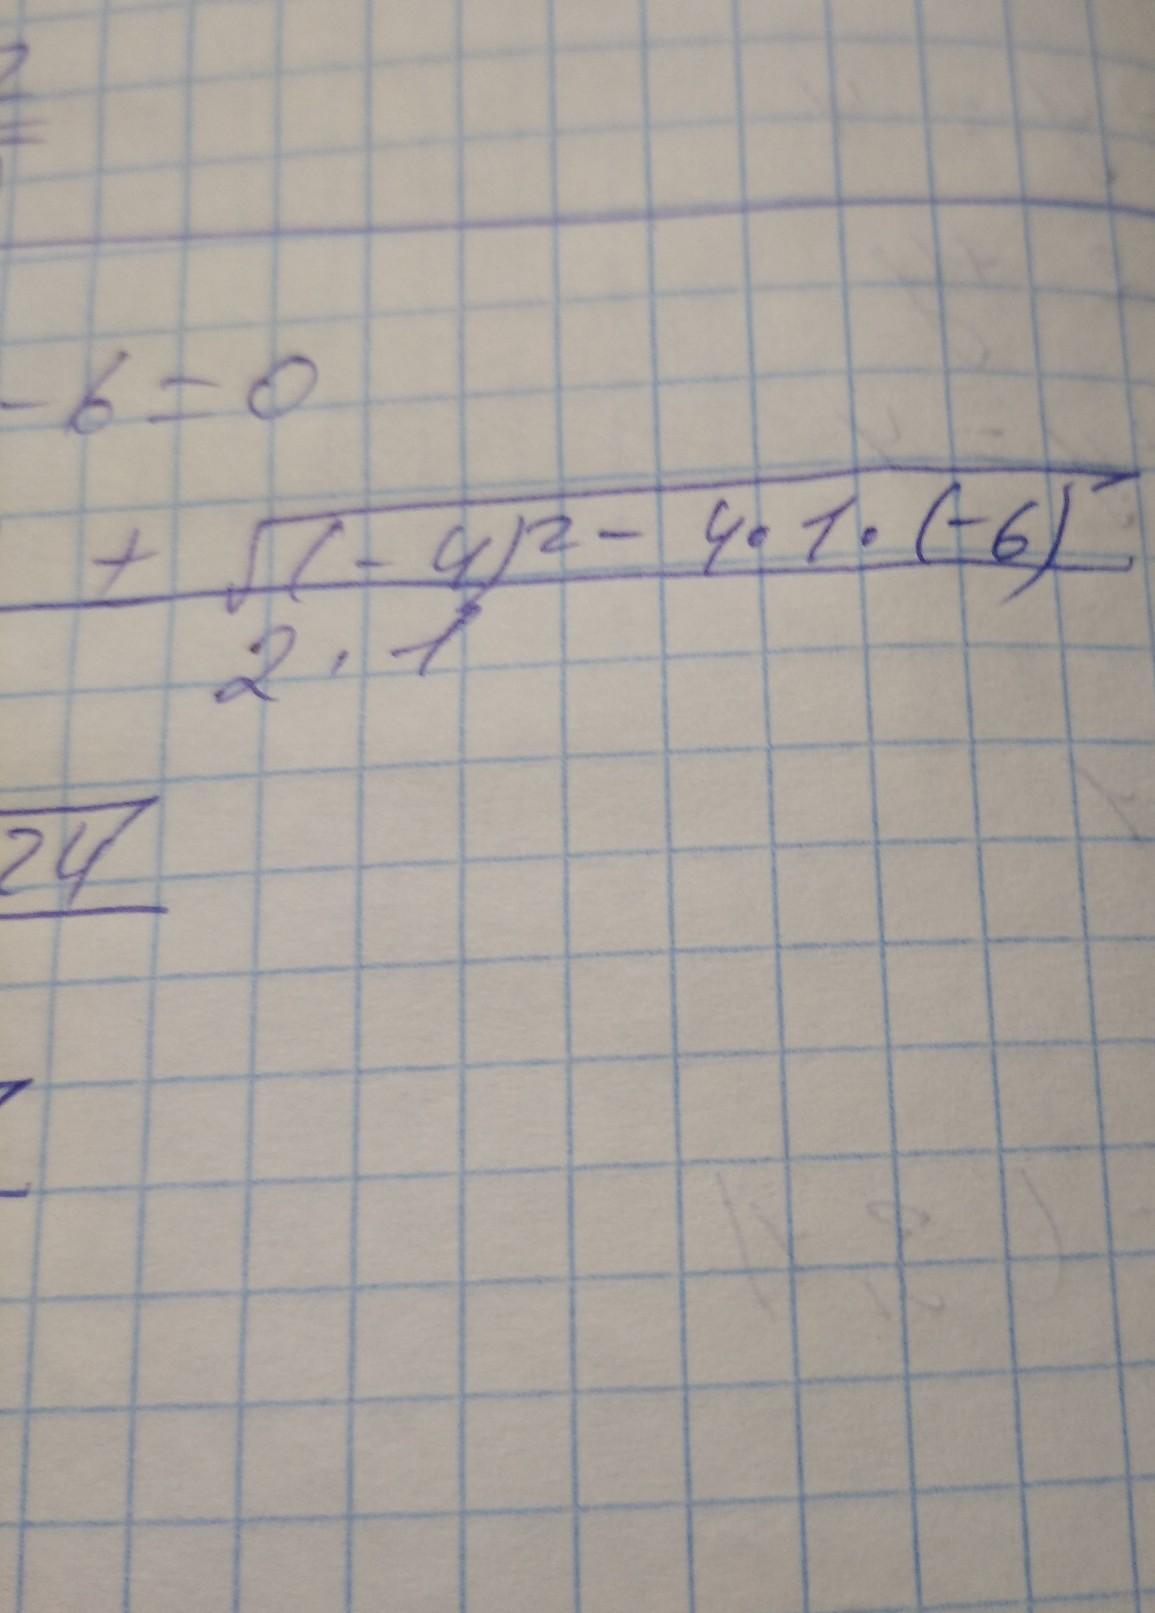 - 6 = 0
+ √(-4)² - 4·1·(-6)
2·1
24